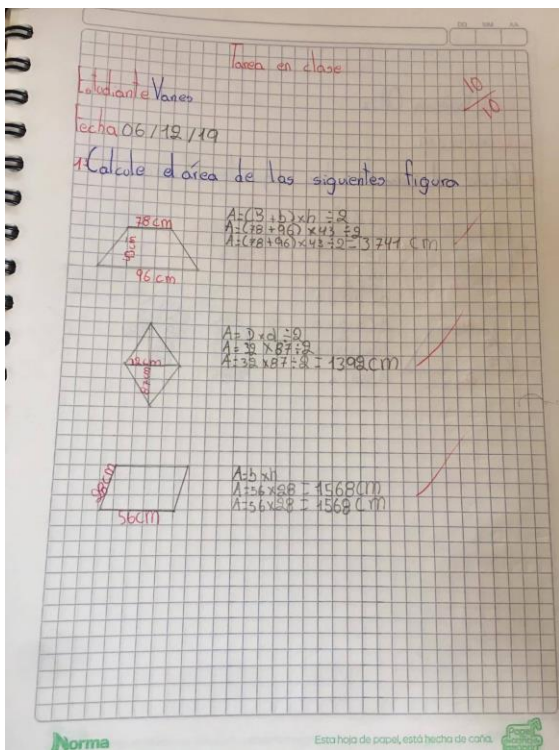 DD. MM. AA.
Tarea en clase
10/10
Estudiante Vanes
Fecha 06/12/19
1 Calcule el área de las siguentes figura
78cm
A=(B+b)xh÷2
A=(78+96)x43÷2
A=(78+96)x43÷2=3741 cm
96cm
A=Dxd÷2
A=32x87÷2
A=32x87÷2=1392cm
32cm
87cm
A=bxh
A=56x28=1568cm
A=56x28=1568cm
28cm
56cm
Norma
Esta hoja de papel, está hecha de caña.